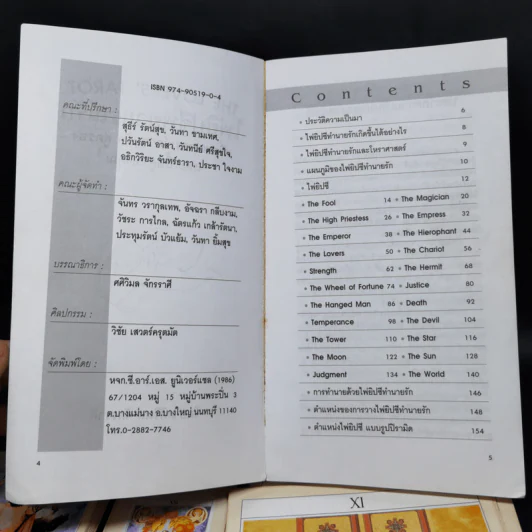 ISBN 974-90519-0-4
คณะที่ปรึกษา :
สุธีร์ รัตน์สุข, วันทา ขามเทศ,
ปวันรัตน์ อาสา, วันทนีย์ ศรีสุขใจ,
อธิกวิริยะ จันทร์ธารา, ประชา ใจงาม
คณะผู้จัดทำ :
จันทร วรากุลเทพ, อัจฉรา กลีบงาม,
วัชระ การไกล, ฉัตรแก้ว เกล้ารัตนา,
ประทุมรัตน์ บัวแย้ม, วันทา ยิ้มสุข
บรรณาธิการ :
ศศิวิมล จักรราศี
ศิลปกรรม :
วิชัย เสวตร์ครุตมัต
จัดพิมพ์โดย :
หจก.ซี.อาร์.เอส. ยูนิเวอร์แซล (1986)
67/1204 หมู่ 15 หมู่บ้านพระปิ่น 3
ต.บางแม่นาง อ.บางใหญ่ นนทบุรี 11140
โทร.0-2882-7746
4
Contents
• ประวัติความเป็นมา 6
• ไพ่ยิปซีทำนายรักเกิดขึ้นได้อย่างไร 8
• ไพ่ยิปซีทำนายรักและโหราศาสตร์ 9
• แผนภูมิของไพ่ยิปซีทำนายรัก 10
• ไพ่ยิปซี 12
• The Fool 14 • The Magician 20
• The High Priestess 26 • The Empress 32
• The Emperor 38 • The Hierophant 44
• The Lovers 50 • The Chariot 56
• Strength 62 • The Hermit 68
• The Wheel of Fortune 74 • Justice 80
• The Hanged Man 86 • Death 92
• Temperance 98 • The Devil 104
• The Tower 110 • The Star 116
• The Moon 122 • The Sun 128
• Judgment 134 • The World 140
• การทำนายด้วยไพ่ยิปซีทำนายรัก 146
• ตำแหน่งของการวางไพ่ยิปซีทำนายรัก 148
• ตำแหน่งไพ่ยิปซี แบบรูปปิรามิด 154
5
XI